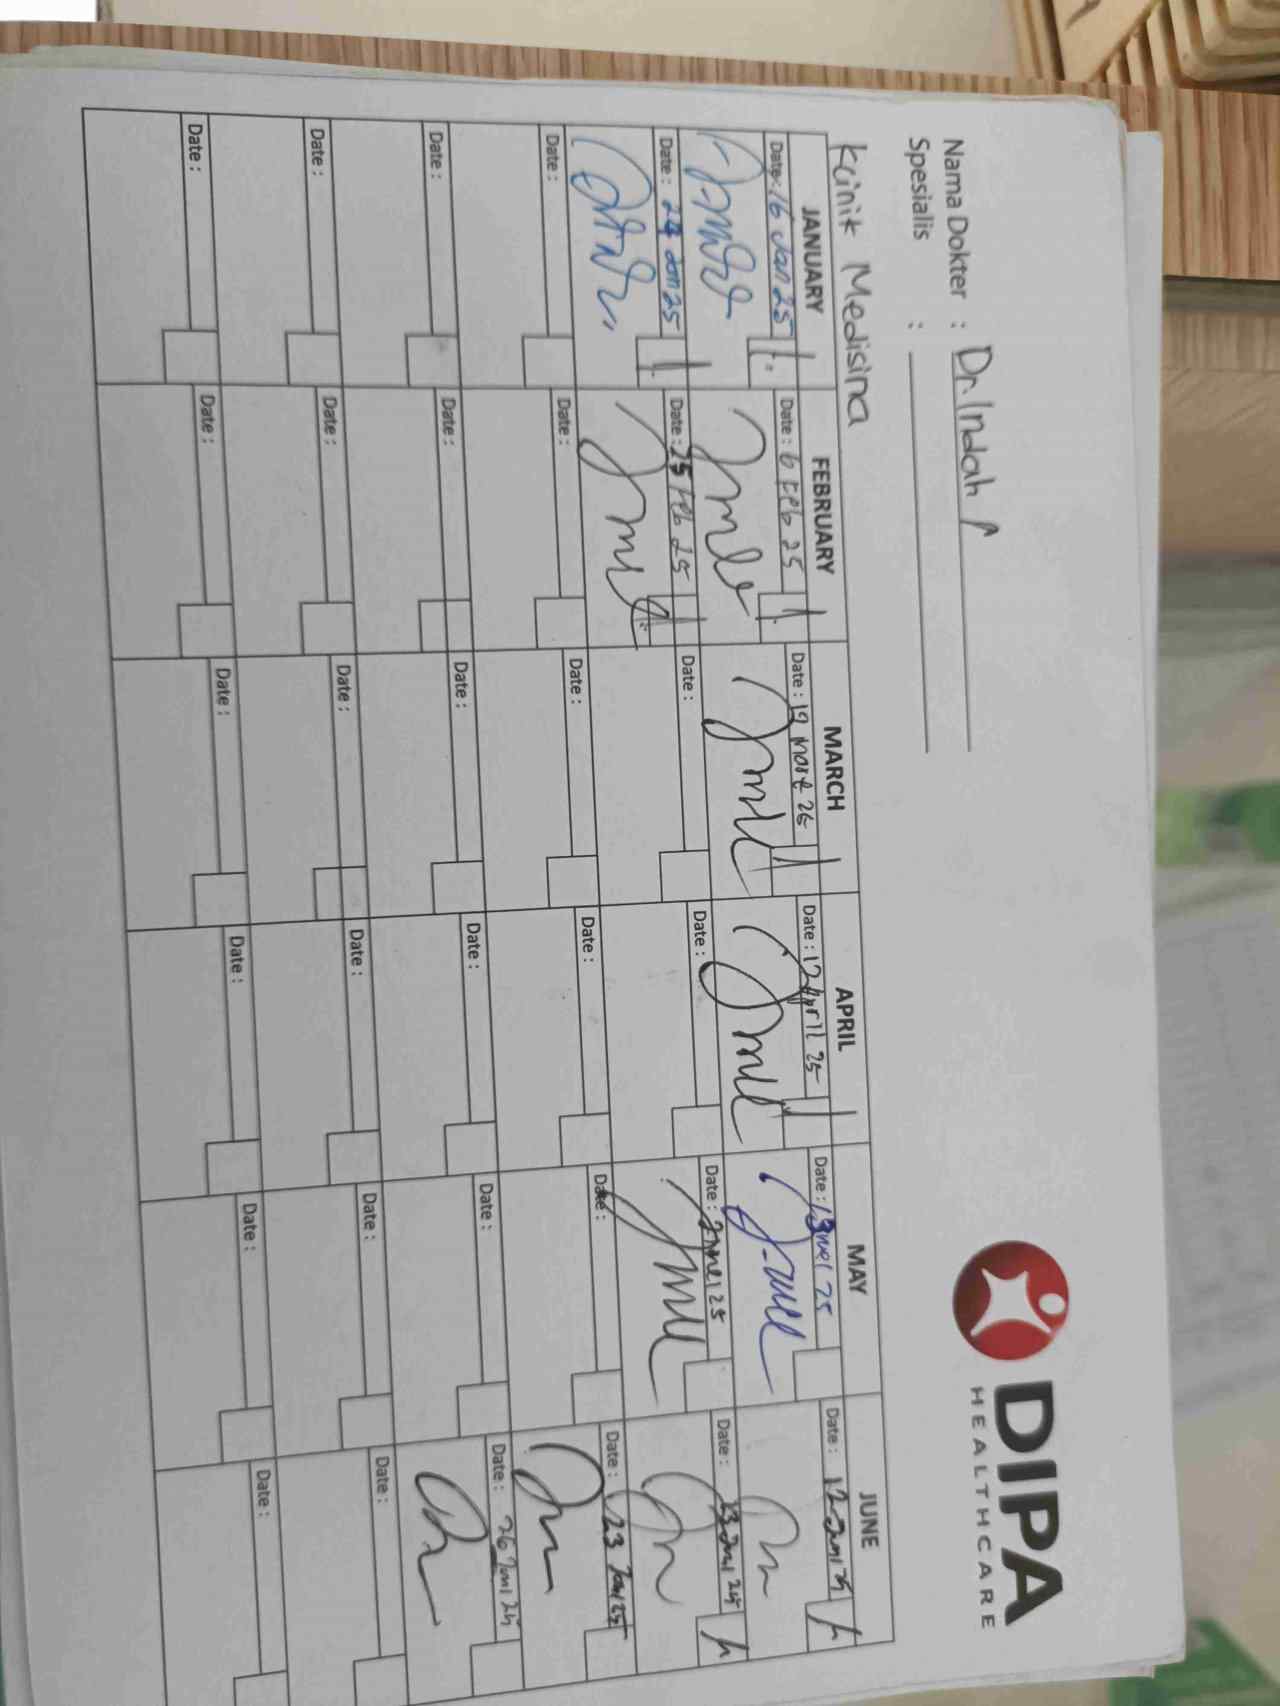 Nama Dokter : Dr. Indah P
Spesialis :
DIPA
HEALTHCARE
Klinik Medisina
JANUARY FEBRUARY MARCH APRIL MAY JUNE
Date: 16 Jan 25 Date: 6 Feb 25 Date: 19 Maret 25 Date: 12 April 25 Date: 13 Mei 25 Date: 12 Juni 25
Date: 24 Jan 25 Date: 25 Feb 25 Date: Date: Date: Mei 25 Date: 13 Juni 25
Date: Date: Date: Date: Date: Date: 23 Juni 25
Date: Date: Date: Date: Date: Date: 26 Juni 25
Date: Date: Date: Date: Date: Date:
Date: Date: Date: Date: Date: Date: